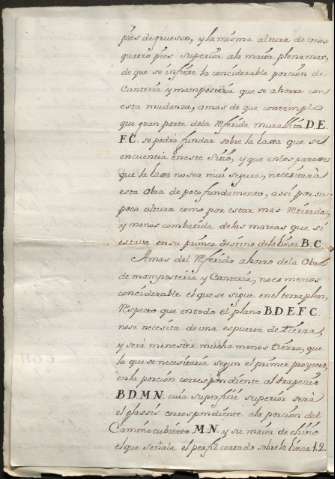 pies de grueso, y la misma altura de dos
quatro pies superior ala maior plenamar,
de que se infiere la considerable porcion de
Canteria y mamposteria que se ahorra con
esta mudanza, amas de que contemplo
que gran parte dela referida muralla D.E.
F.C. se podra fundar sobre la lastra que se
encuentra en este sitio, y que en los parages
que la lastra no sea mui segura, necesitará
esta Obra de poco fundamento, assi por su
poca altura como por estar mas Retirada,
y menos combatida de las mareas que si
estuviera en su primer destino de la linea B.C.
Amas del referido ahorro dela Obra
de mamposteria y Canteria, no es menos
considerable el que se sigue en el terraplen
Respecto que en todo el plano B.D.E.F.C.
no se necesita de una espuerta de tierra,
y será menester mucha menos tierra, que
la que se necesitaria segun el primer proyecto,
en la porcion correspondiente al trapecio
B.D.M.N. cuia superficie superior será
el glassis correspondiente ala porcion del
Camino cubierto M.N. y su maior declivio
el que señala el perfil cortado sobre la linea 1.2.